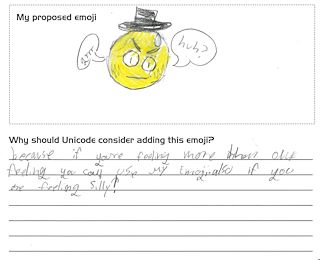 My proposed emoji
grrr
huh?
Why should Unicode consider adding this emoji?
because if you're feeling more than one
feeling you could use my emoji also if you
are feeling silly!